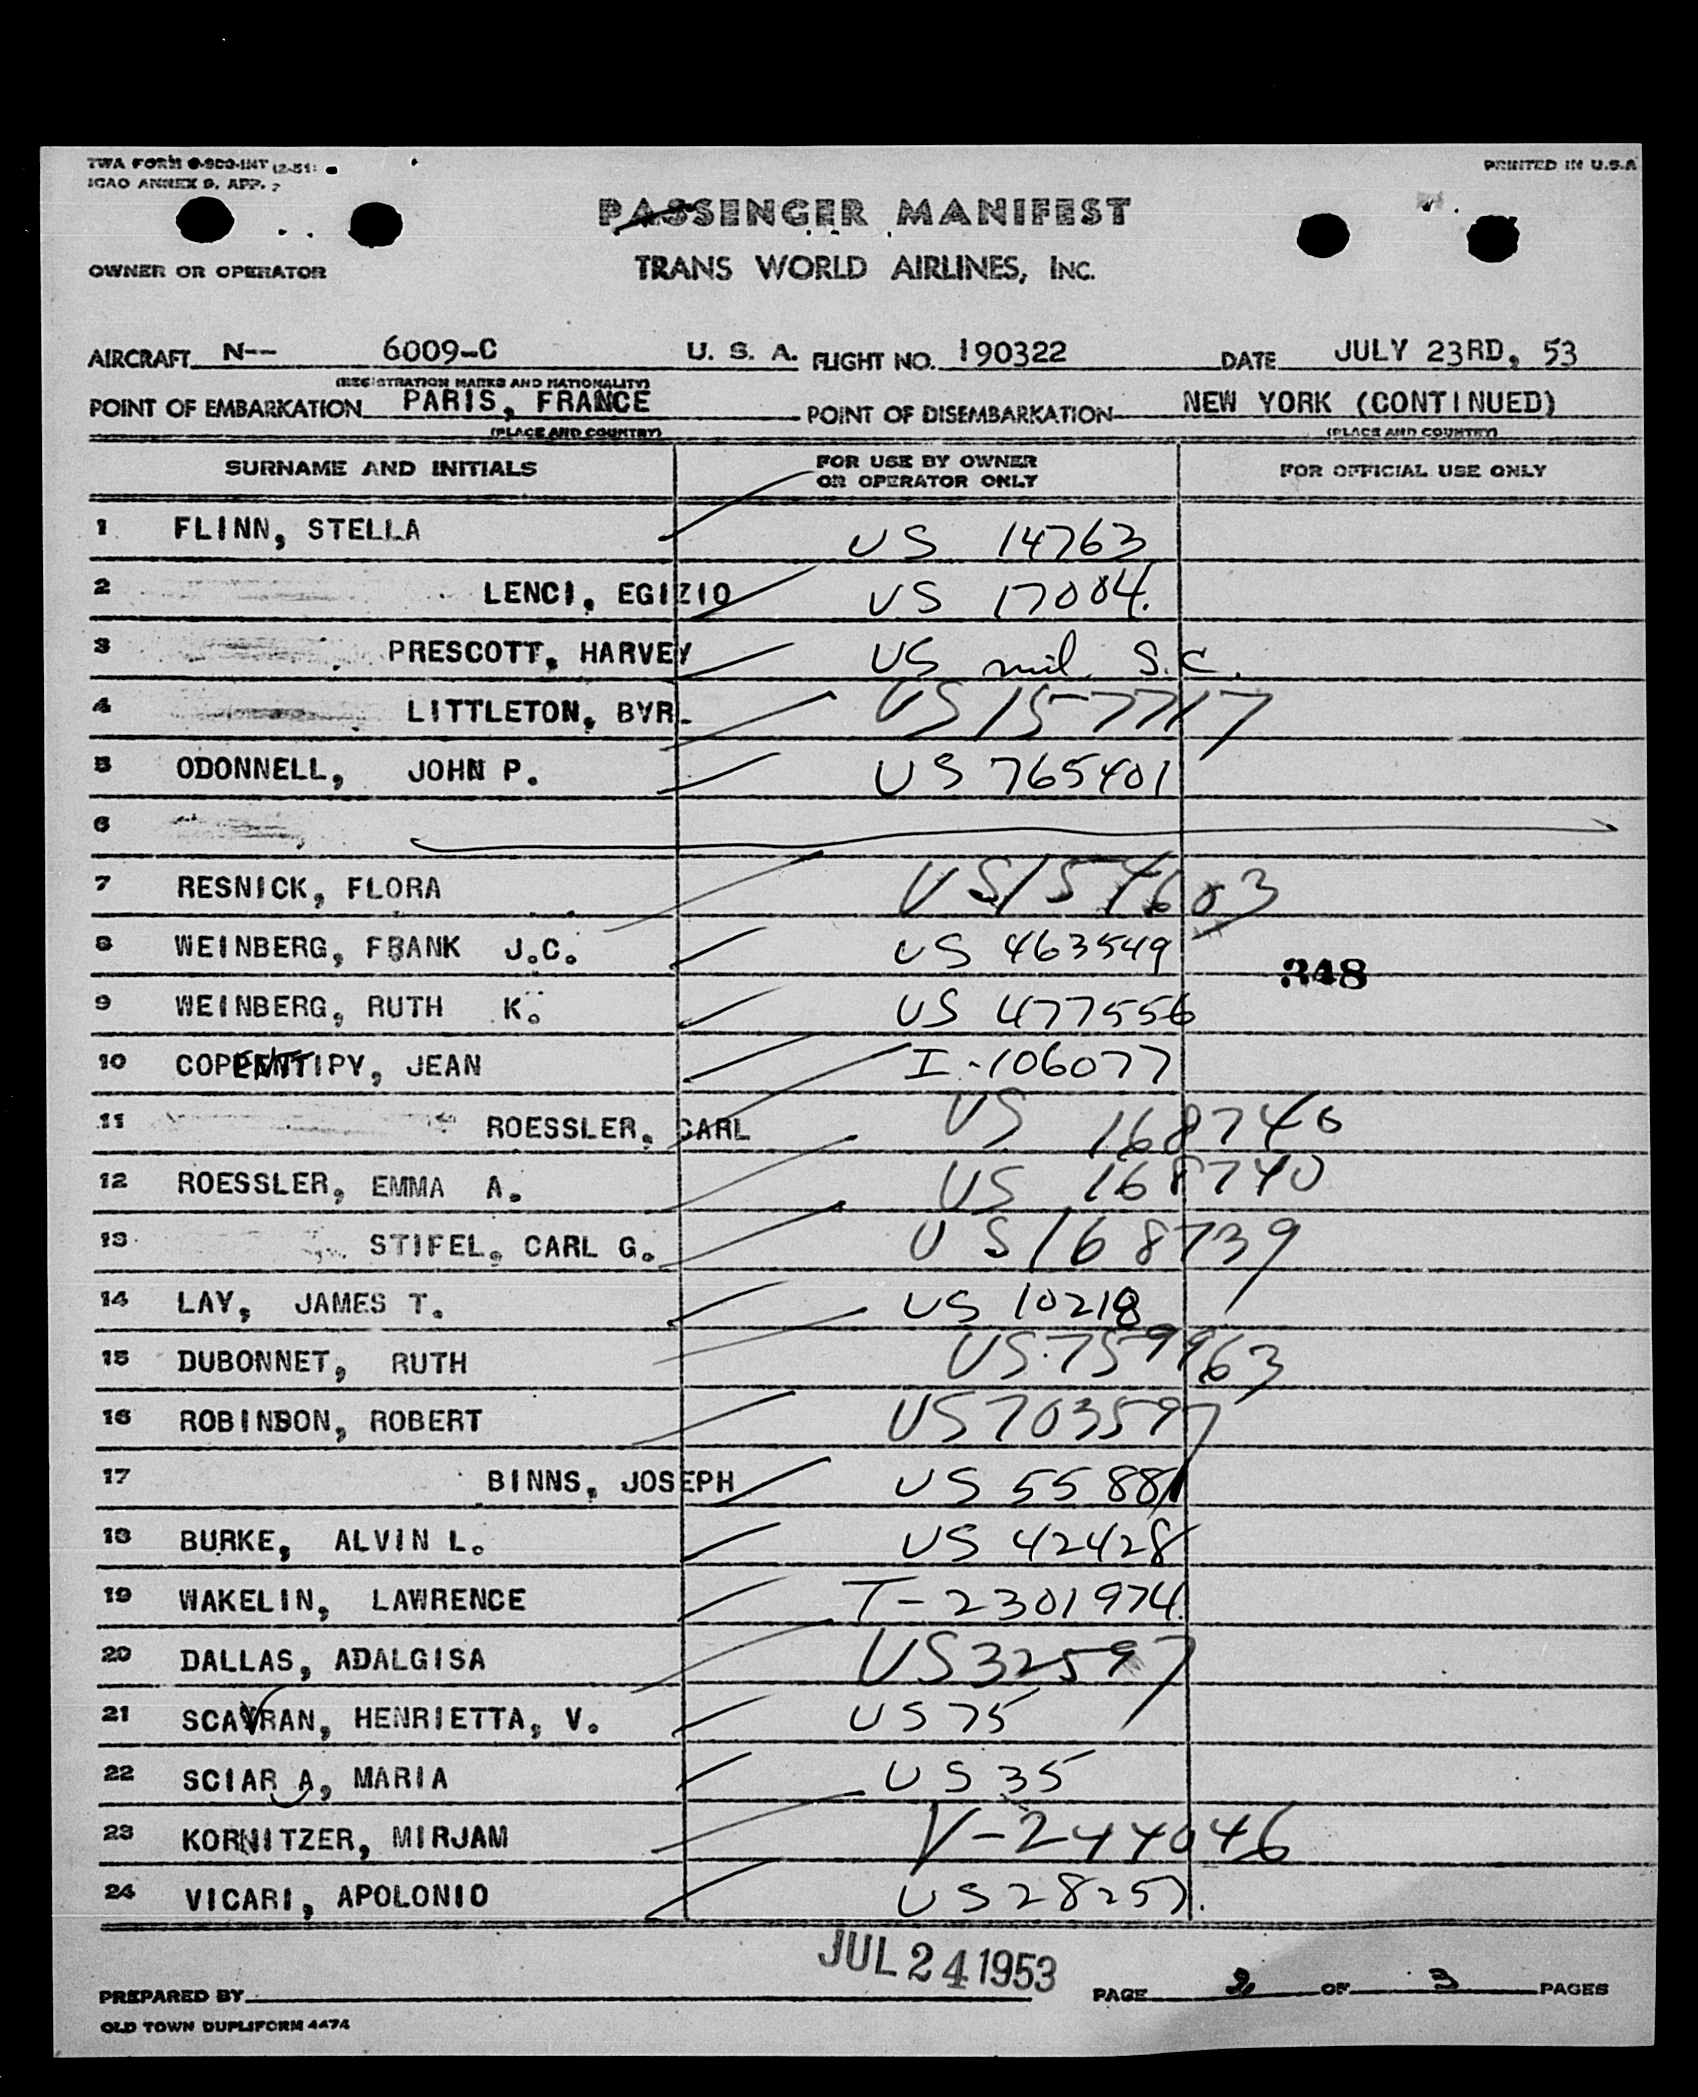 TWA FORM
ICAO ANNEX 9. APP.
PRINTED IN U.S.A
PASSENGER MANIFEST
OWNER OR OPERATOR
TRANS WORLD AIRLINES, INC.
AIRCRAFT N-- 6009-C U. S. A. FLIGHT NO. 190322 DATE JULY 23RD, 53
(REGISTRATION MARKS AND NATIONALITY)
POINT OF EMBARKATION PARIS, FRANCE POINT OF DISEMBARKATION NEW YORK (CONTINUED)
(PLACE AND COUNTRY) (PLACE AND COUNTRY)
SURNAME AND INITIALS FOR USE BY OWNER OR OPERATOR ONLY FOR OFFICIAL USE ONLY
1 FLINN, STELLA US 14763
2 LENCI, EGIZIO US 17004.
3 PRESCOTT, HARVEY US mil. S.C.
4 LITTLETON, BYR. US 157717
5 ODONNELL, JOHN P. US 765401
6
7 RESNICK, FLORA US 154603
8 WEINBERG, FRANK J.C. US 463549
348
9 WEINBERG, RUTH K. US 477556
10 COPENTIPY, JEAN I-106077
11 ROESSLER, CARL US 168740
12 ROESSLER, EMMA A. US 168740
13 STIFEL, CARL G. US 168739
14 LAY, JAMES T. US 10218
15 DUBONNET, RUTH US 759963
16 ROBINSON, ROBERT US 703597
17 BINNS, JOSEPH US 55881
18 BURKE, ALVIN L. US 42428
19 WAKELIN, LAWRENCE T-2301974
20 DALLAS, ADALGISA US 32597
21 SCAVRAN, HENRIETTA, V. US 75
22 SCIAR A, MARIA US 35
23 KORNITZER, MIRJAM V-244046
24 VICARI, APOLONIO US 28257.
JUL 24 1953
PREPARED BY PAGE 2 OF 3 PAGES
OLD TOWN DUPLIFORM 4474